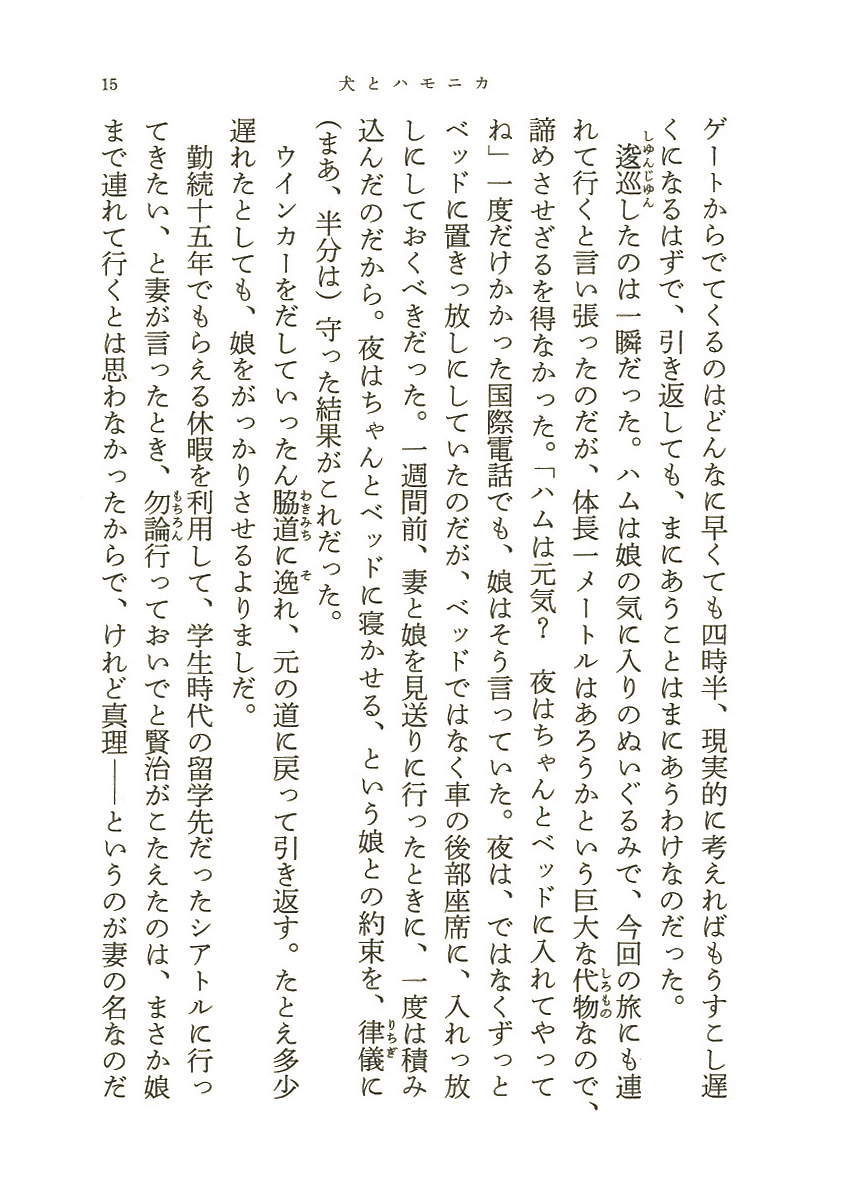 15
犬とハモニカ
ゲートからでてくるのはどんなに早くても四時半、現実的に考えればもうすこし遅
くになるはずで、引き返しても、まにあうことはまにあうわけなのだった。
しゆんじゆん
逡巡したのは一瞬だった。ハムは娘の気に入りのぬいぐるみで、今回の旅にも連
れて行くと言い張ったのだが、体長一メートルはあろうかという巨大な代物なので、
しろもの
諦めさせざるを得なかった。「ハムは元気？　夜はちゃんとベッドに入れてやって
ね」一度だけかかった国際電話でも、娘はそう言っていた。夜は、ではなくずっと
ベッドに置きっ放しにしていたのだが、ベッドではなく車の後部座席に、入れっ放
しにしておくべきだった。一週間前、妻と娘を見送りに行ったときに、一度は積み
込んだのだから。夜はちゃんとベッドに寝かせる、という娘との約束を、律儀に
りちぎ
（まあ、半分は）守った結果がこれだった。
ウインカーをだしていったん脇道に逸れ、元の道に戻って引き返す。たとえ多少
わきみち
そ
遅れたとしても、娘をがっかりさせるよりましだ。
勤続十五年でもらえる休暇を利用して、学生時代の留学先だったシアトルに行っ
てきたい、と妻が言ったとき、勿論行っておいでと賢治がこたえたのは、まさか娘
もちろん
まで連れて行くとは思わなかったからで、けれど真理――というのが妻の名なのだ